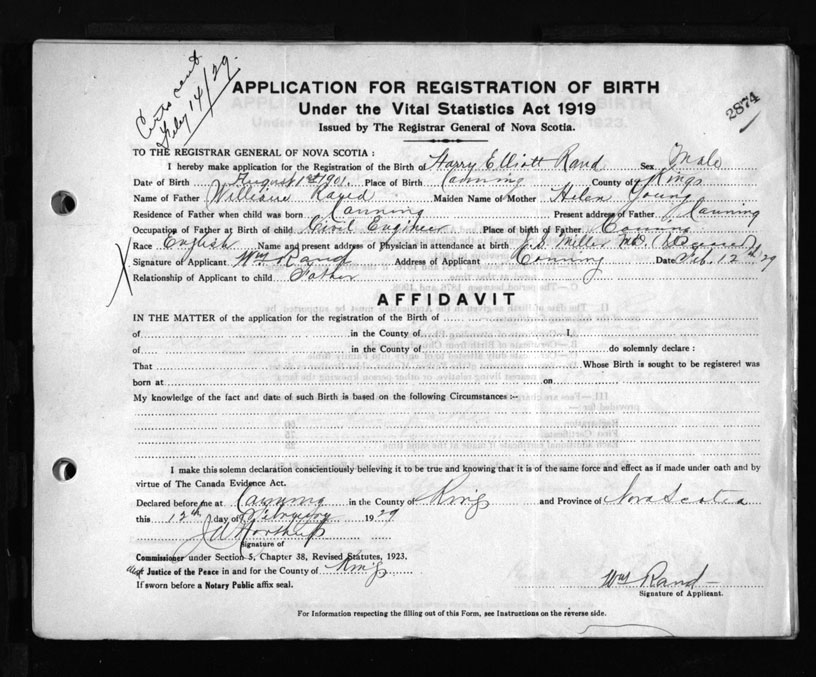 Certs sent
Feby 14/29.
2874
APPLICATION FOR REGISTRATION OF BIRTH
Under the Vital Statistics Act 1919
Issued by The Registrar General of Nova Scotia.
TO THE REGISTRAR GENERAL OF NOVA SCOTIA :
I hereby make application for the Registration of the Birth of Harry Elliott Rand Sex Male
Date of Birth August 1st 1901. Place of Birth Canning County of Kings
Name of Father William Rand Maiden Name of Mother Helen Young
Residence of Father when child was born Canning Present address of Father Canning
Occupation of Father at Birth of child Civil Engineer Place of birth of Father Canning
Race English Name and present address of Physician in attendance at birth Miller M.D. (Deceased)
Signature of Applicant Wm Rand Address of Applicant Canning Date Feb. 12th 29
Relationship of Applicant to child Father
AFFIDAVIT
IN THE MATTER of the application for the registration of the Birth of
of in the County of I,
of in the County of do solemnly declare :
That Whose Birth is sought to be registered was
born at on
My knowledge of the fact and date of such Birth is based on the following Circumstances :-
I make this solemn declaration conscientiously believing it to be true and knowing that it is of the same force and effect as if made under oath and by
virtue of The Canada Evidence Act.
Declared before me at Canning in the County of Kings and Province of Nova Scotia
this 12th day of February 1929
Signature of
Commissioner under Section 5, Chapter 38, Revised Statutes, 1923.
Justice of the Peace in and for the County of Kings
If sworn before a Notary Public affix seal.
Wm Rand
Signature of Applicant.
For Information respecting the filling out of this Form, see Instructions on the reverse side.